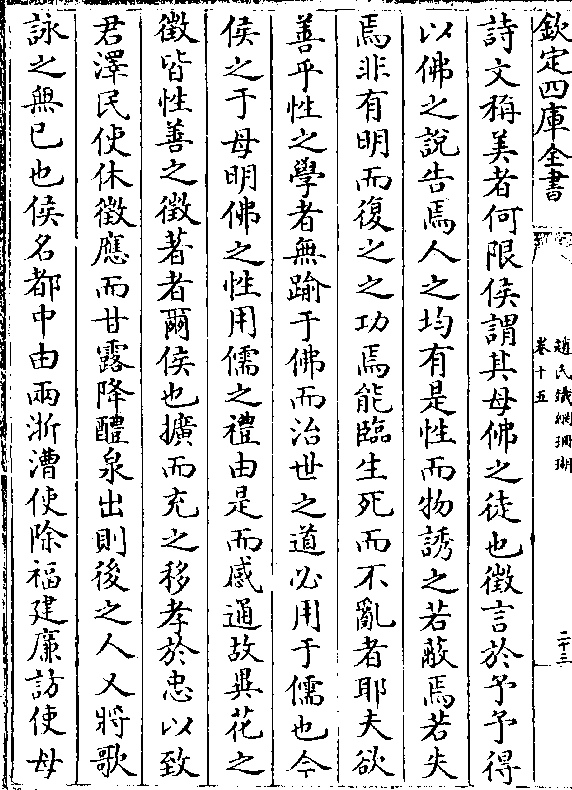 欽定四庫全書
趙氏鐵網珊瑚
卷十五
二十三
詩文稱美者何限侯謂其母佛之徒也徵言於予予得
以佛之說告焉人之均有是性而物誘之若蔽焉若失
焉非有明而復之之功焉能臨生死而不亂者耶夫欲
善乎性之學者無踰于佛而治世之道必用于儒也今
侯之于母明佛之性用儒之禮由是而感通故異花之
徵皆性善之徵著者爾侯也擴而充之移孝於忠以致
君澤民使休徵應而甘露降醴泉出則後之人又將歌
詠之無已也侯名都中由兩浙漕使除福建廉訪使母